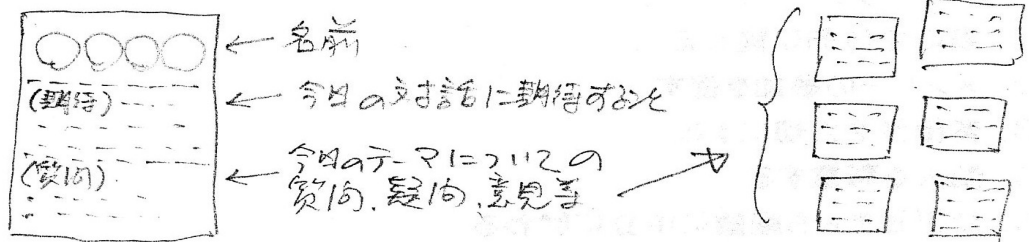 名前
(期待)
今日の対話に期待すること
(質問)
今日のテーマについての
質問、疑問、意見等